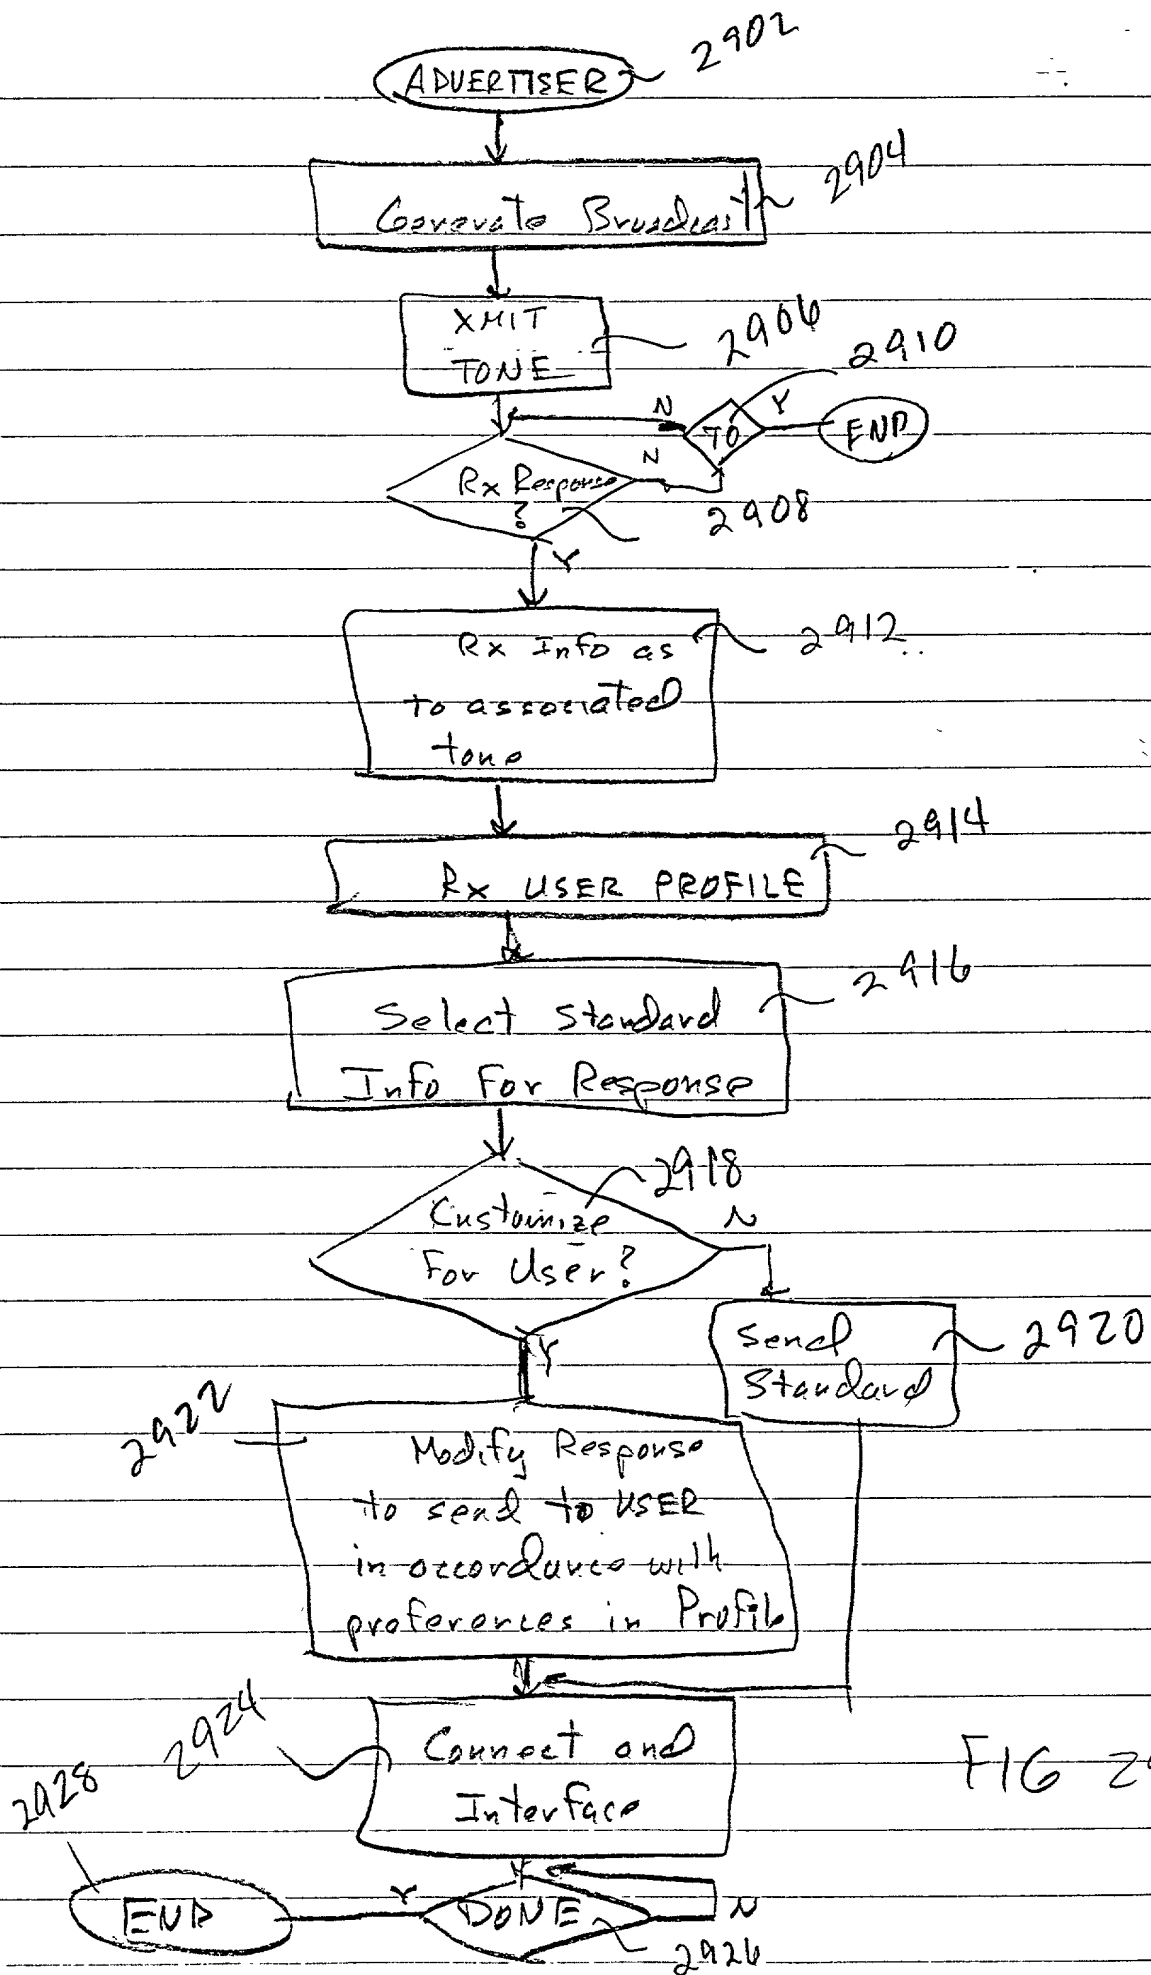 2902
ADVERTISER
2904
Generate Broadcast
XMIT
TONE
2906
2910
N
TO
Y
END
Rx Response
?
N
2908
Y
Rx Info as
to associated
tone
2912
2914
Rx USER PROFILE
2916
Select Standard
Info For Response
2918
Customize
For User?
N
Y
Send
Standard
2920
2922
Modify Response
to send to USER
in accordance with
preferences in Profile
2924
Connect and
Interface
FIG 29
2928
END
Y
DONE
N
2926